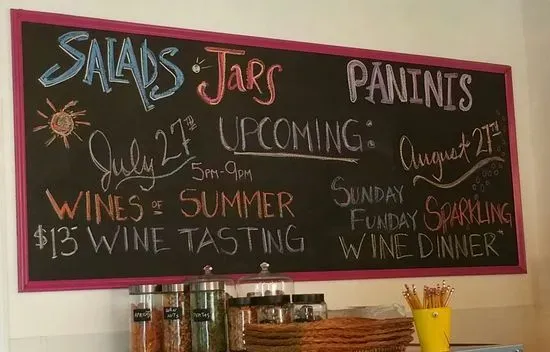 SALADS • JARS PANINIS
UPCOMING:
July 27TH
5PM-9PM
WINES OF SUMMER
$15 WINE TASTING
August 27TH
SUNDAY
FUNDAY SPARKLING
WINE DINNER
APRICOTS
CORN NUTS